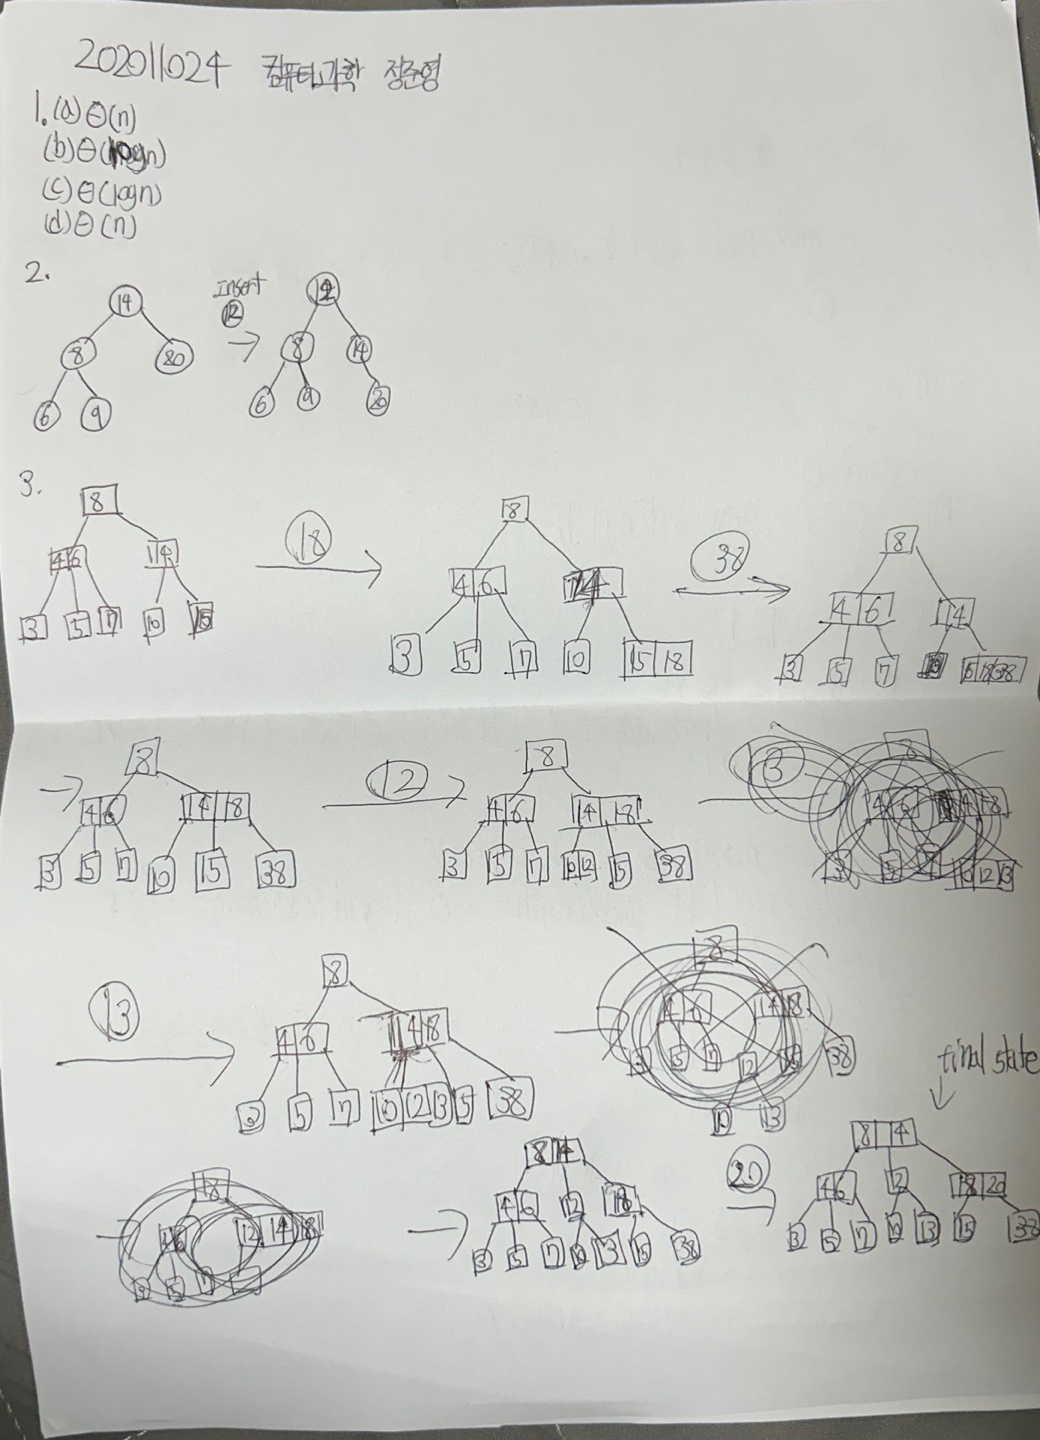 202011024 컴퓨터과학 정준영
1. (a) Θ(n)
(b) Θ(logn)
(c) Θ(logn)
(d) Θ(n)
2.
14
8 20
6 9
Insert
12
→
12
8 14
6 9 20
3.
8
4 6 14
3 5 7 10 15
18
8
4 6 14
3 5 7 10 15 18
38
8
4 6 14
3 5 7 10 15 18 38
→
8
4 6 14 18
3 5 7 10 15 38
12
8
4 6 14 18
3 5 7 10 12 15 38
13
8
4 6 14 18
3 5 7 10 12 13
13
8
4 6 14 18
3 5 7 10 12 13 15 38
8
4 6 14 18
3 5 7 12 15 38
10 13
18
4 6 12 14 18
3 5 7
→
8 14
4 6 12 18
3 5 7 10 13 15 38
20
final state
8 14
4 6 12 18 20
3 5 7 10 13 15 38